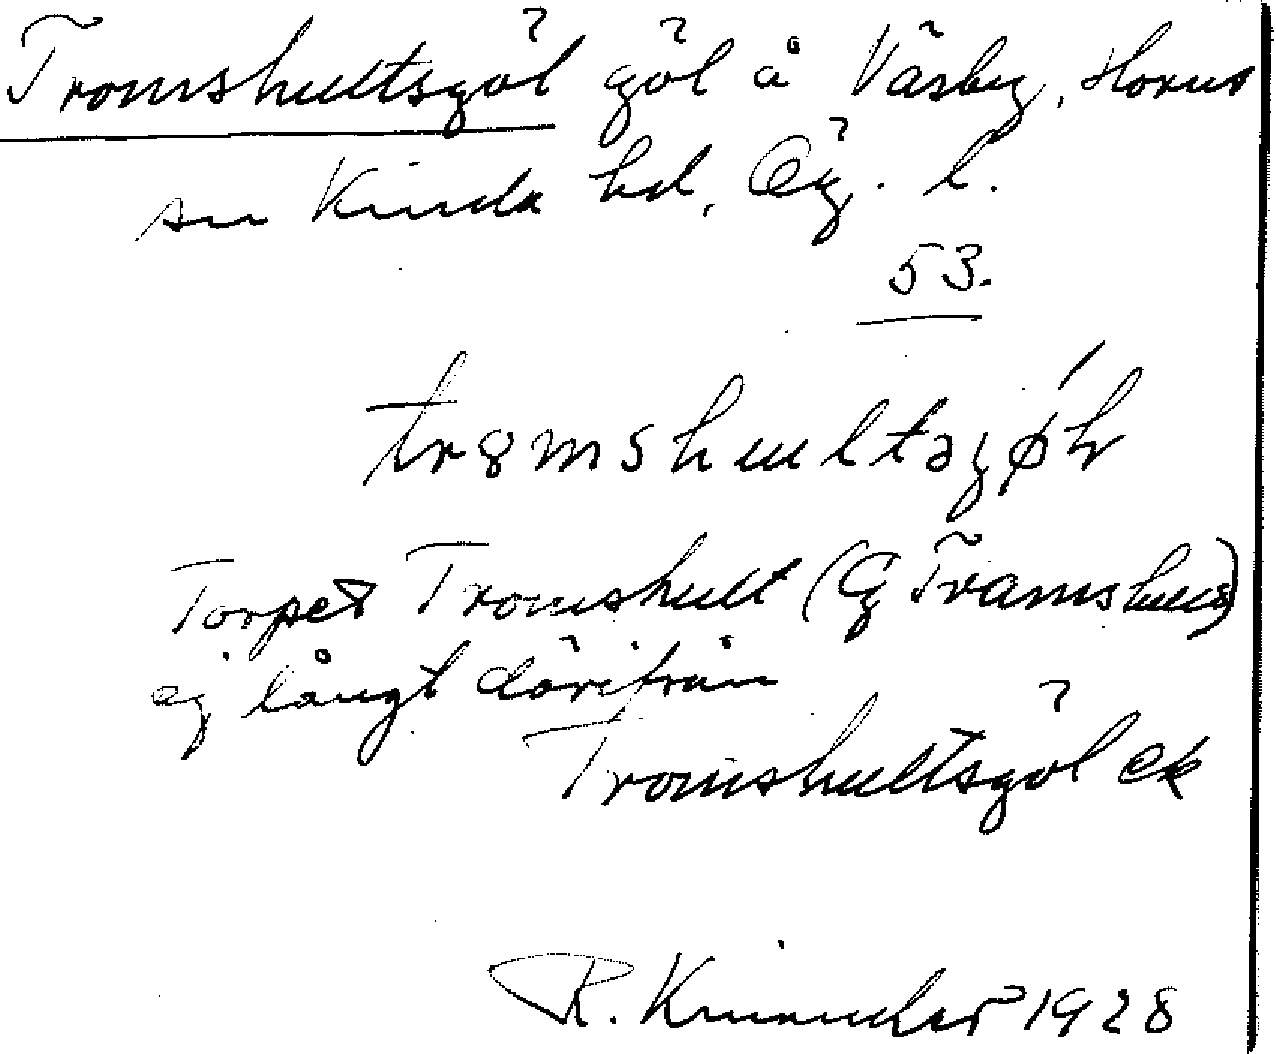 Tromshultsgöl göl å Väsby, Horns
sn Kinda hd, Ög. l.
53.
tr8mshultsgø̀l
Torpet Tromshult (G Tramshult)
ej långt därifrån
Tromshultsgöl ek
R. Kinander 1928